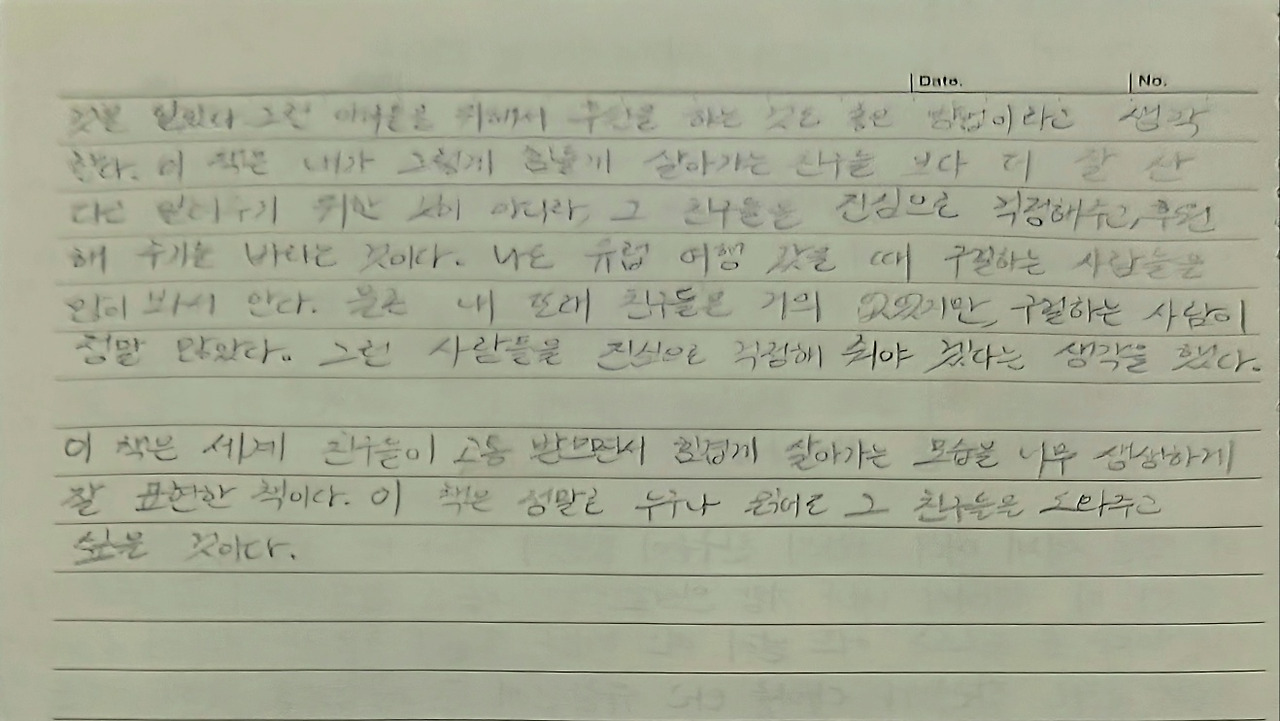 Date. No.
그런 아이들을 위해서 후원을 하는 것도 좋은 방법이라고 생각
한다. 이 책은 내가 그렇게 힘들게 살아가는 친구들 보다 더 잘 산
다는 알려주기 위한 것이 아니라, 그 친구들을 진심으로 걱정해주고, 후원
해 주기를 바라는 것이다. 나는 유럽 여행 갔을 때 구걸하는 사람들을
많이 봐서 안다. 물론 내 또래 친구들은 거의 없었지만, 구걸하는 사람이
정말 많았다. 그런 사람들을 진심으로 걱정해 줘야 겠다는 생각을 했다.
이 책은 세계 친구들이 고통 받으면서 힘겹게 살아가는 모습을 너무 생생하게
잘 표현한 책이다. 이 책은 정말로 누구나 읽어도 그 친구들을 도와주고
싶을 것이다.